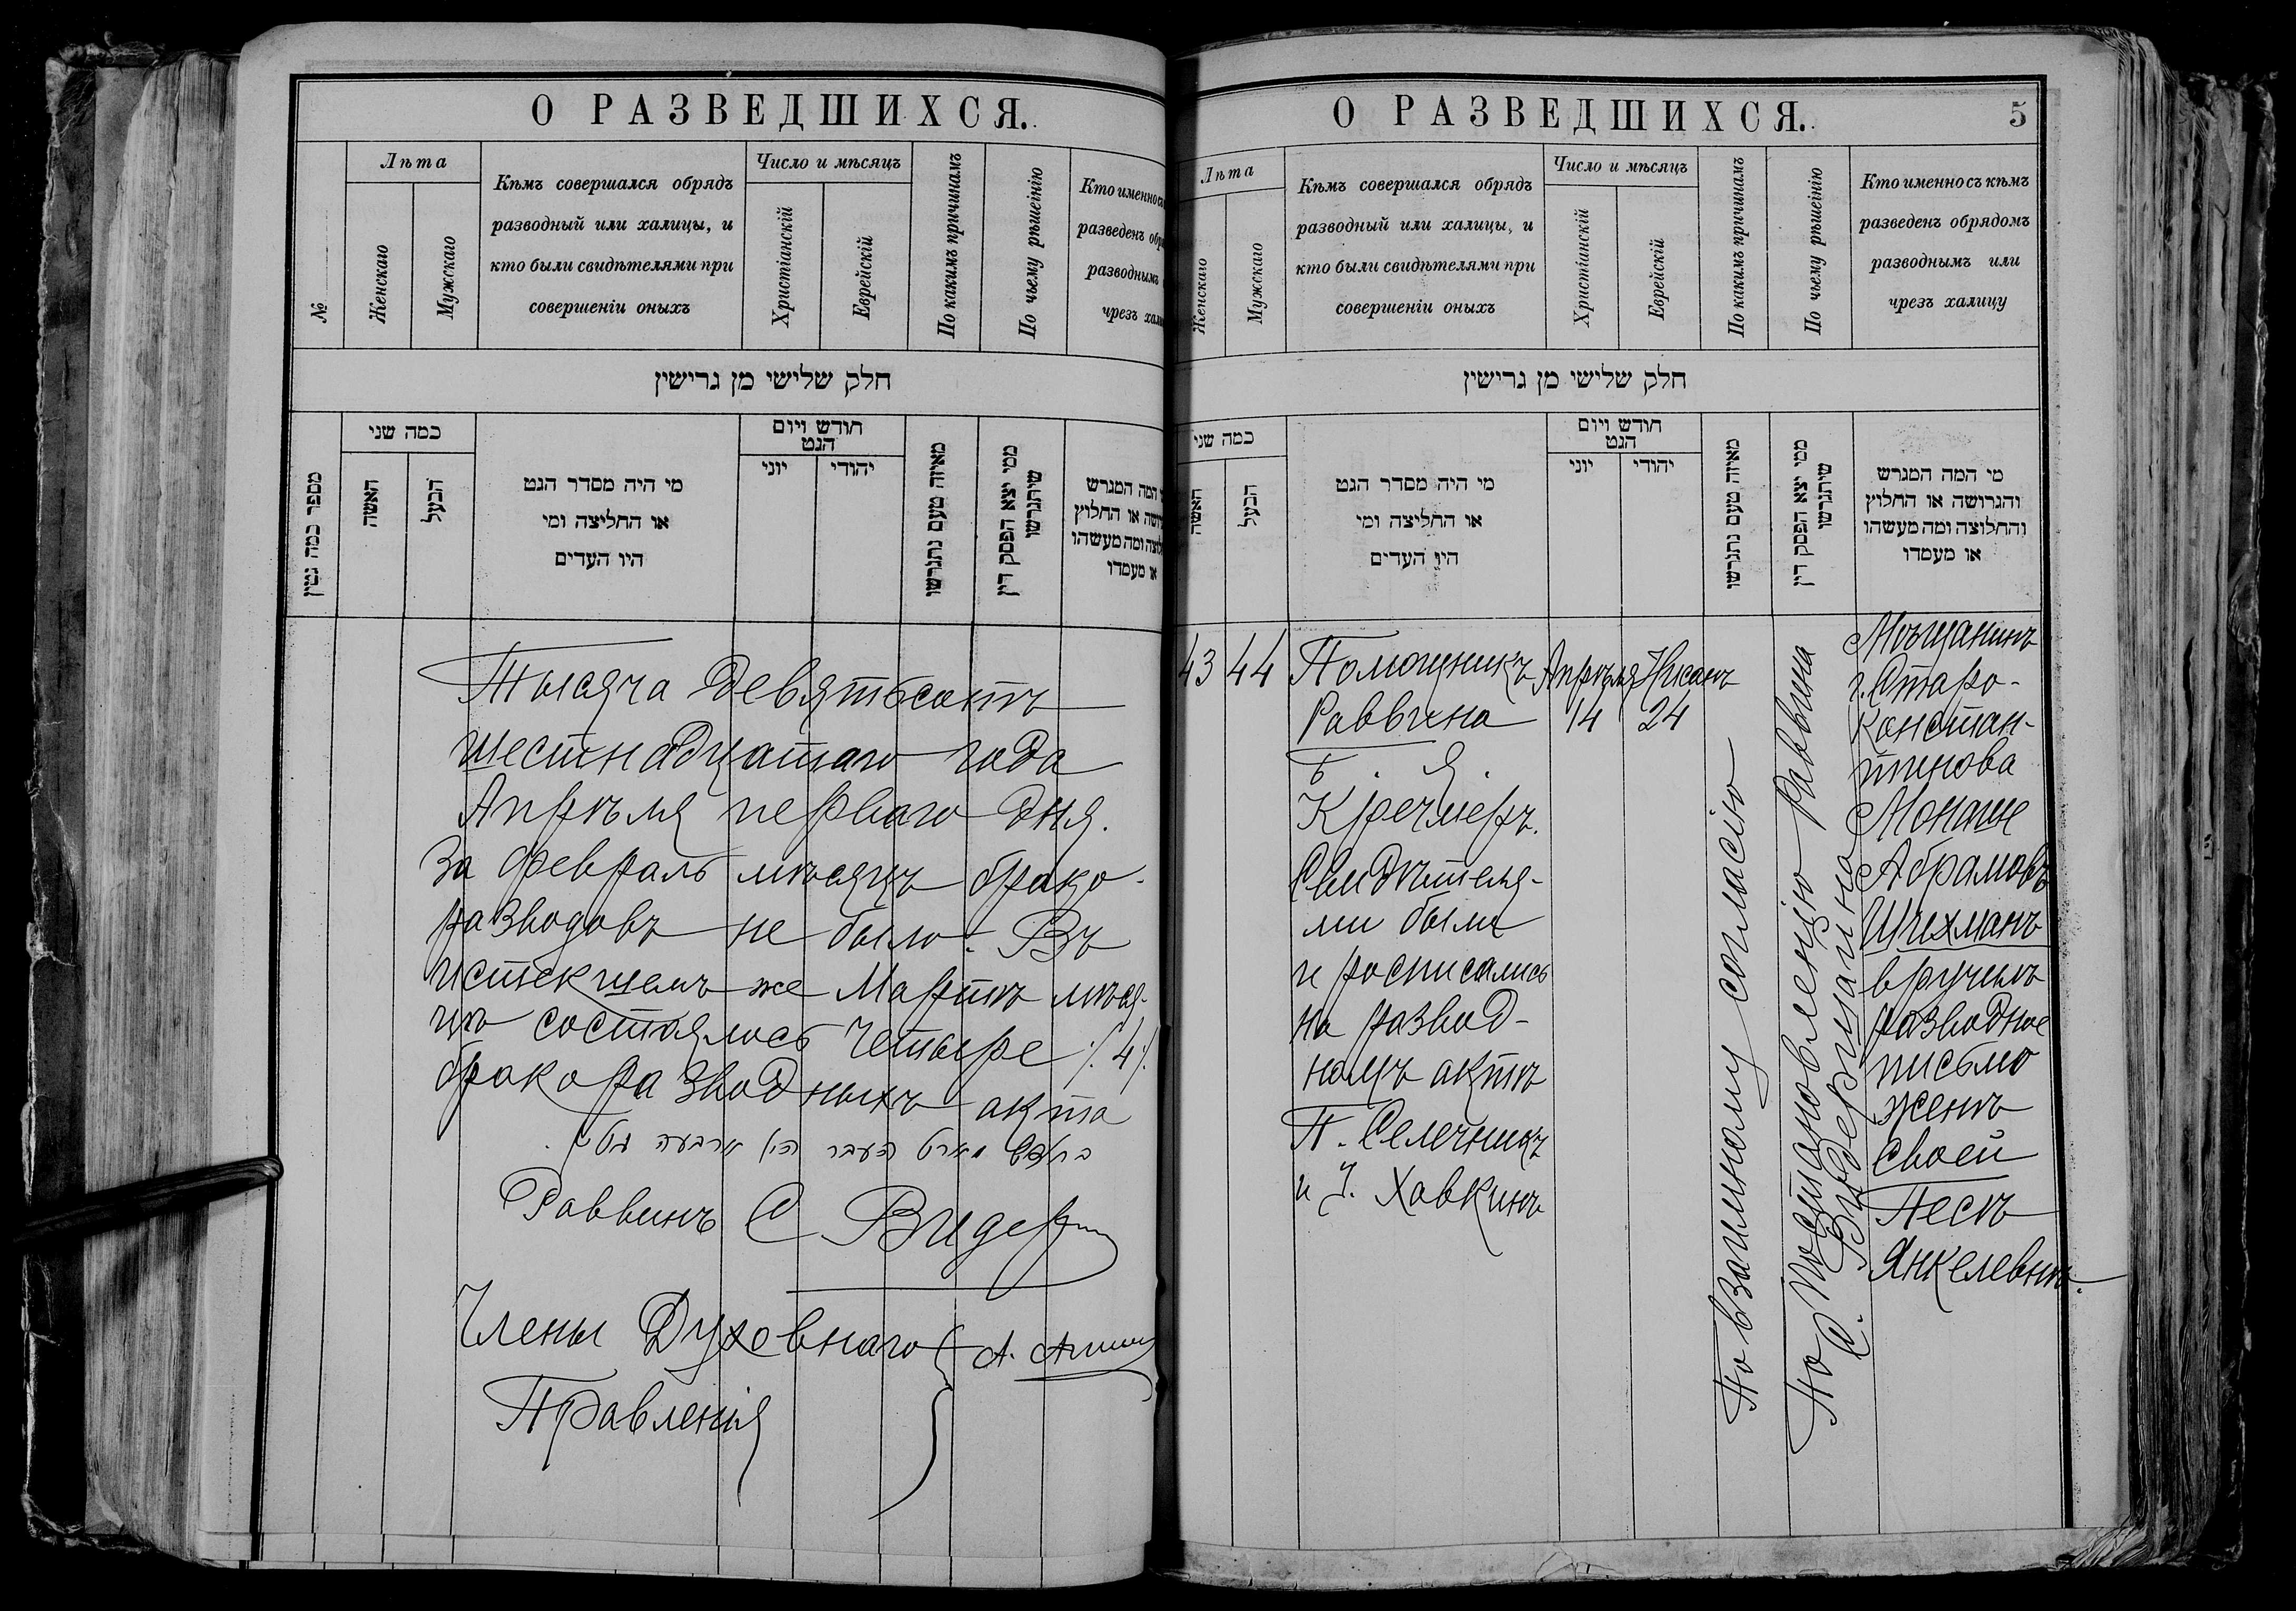 О РАЗВЕДШИХСЯ.
№
Лѣта
Женскаго
Мужскаго
Кѣмъ совершался обрядъ
разводный или халицы, и
кто были свидѣтелями при
совершеніи оныхъ
Число и мѣсяцъ
Христіанскій
Еврейскій
По какимъ причинамъ
По чьему рѣшенію
Кто именно съ
разведенъ обря
разводнымъ
чрезъ хали
חלק שלישי מן גרישין
מספר כמה גטין
כמה שני
האשה
הבעל
מי היה מסדר הגט
או החליצה ומי
היו העדים
חודש ויום
הגט
יוני
יהודי
מאיזה טעם נתגרשו
ממי יצא הפסק דין
שיתגרשו
המה המגרש
או החלוץ
ומה מעשהו
או מעמדו
Тысяча девятьсотъ
шестнадцатаго года
Апрѣля перваго дня.
За февраль мѣсяцъ брако-
разводовъ не было. Въ
истекшемъ же Мартѣ мѣся-
цѣ состоялось четыре /:4:/
бракоразводныхъ акта
העבר היו ארבעה
Раввинъ С Видер
Члены Духовнаго А.
Правленія
О РАЗВЕДШИХСЯ.
5
Лѣта
Женскаго
Мужскаго
Кѣмъ совершался обрядъ
разводный или халицы, и
кто были свидѣтелями при
совершеніи оныхъ
Число и мѣсяцъ
Христіанскій
Еврейскій
По какимъ причинамъ
По чьему рѣшенію
Кто именно съ кѣмъ
разведенъ обрядомъ
разводнымъ или
чрезъ халицу
חלק שלישי מן גרישין
כמה שני
האשה
הבעל
מי היה מסדר הגט
או החליצה ומי
היו העדים
חודש ויום
הגט
יוני
יהודי
מאיזה טעם נתגרשו
ממי יצא הפסק דין
שיתגרשו
מי המה המגרש
והגרושה או החלוץ
והחלוצה ומה מעשהו
או מעמדו
43
44
Помощникъ
Раввина
Б. Я.
Кречмеръ.
Свидѣтеля-
ми были
и росписались
на развод-
номъ актѣ
П. Селечникъ
и І. Хавкинъ
Апрѣля
14
Нисанъ
24
По взаимному согласію
По постановленію Раввина
С. Видермана
Мѣщанинъ
г. Старо-
констан-
тинова
Монаше
Абрамовъ
Щихманъ
вручилъ
разводное
письмо
женѣ
своей
Песѣ
Янкелевнѣ.